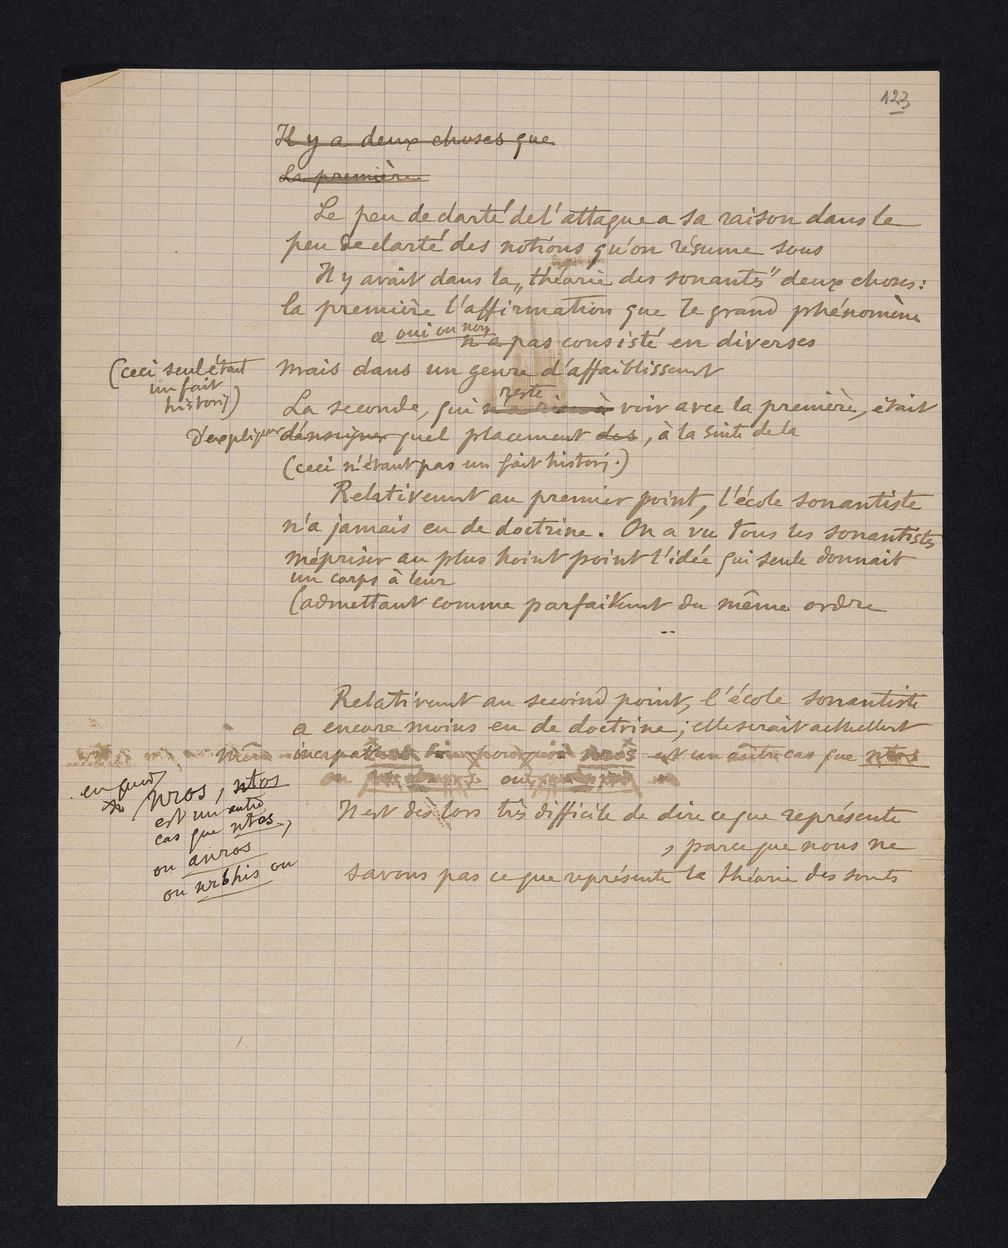 123
Il y a deux choses que
La première
Le peu de clarté de l'attaque a sa raison dans le
peu de clarté des notions qu'on résume sous
Il y avait dans la „théorie des sonantes" deux choses:
la première l'affirmation que le grand phénomène
a oui ou non
n'a pas consisté en diverses
(ceci seul étant
un fait
histoirq)
mais dans un genre d'affaiblissement
reste
La seconde, qui n'a rien à voir avec la première, était
D'expliquer d'enseigner quel placement des, à la suite de la
(ceci n'étant pas un fait historq.)
Relativement au premier point, l'école sonantiste
n'a jamais eu de doctrine. On a vu tous les sonantistes
mépriser au plus hoint point l'idée qui seule donnait
un corps à leur
(admettant comme parfaitement du même ordre
Relativement au second point, l'école sonantiste
a encore moins eu de doctrine; elle serait actuellement
même incapable nros est un autre cas que ntos
ou ou
en quoi
nros, ntos
est un autre
cas que ntos,
ou anros
ou nrbhis ou
Il est dès lors très difficile de dire ce que représente
, parce que nous ne
savons pas ce que représente la théorie des sonants